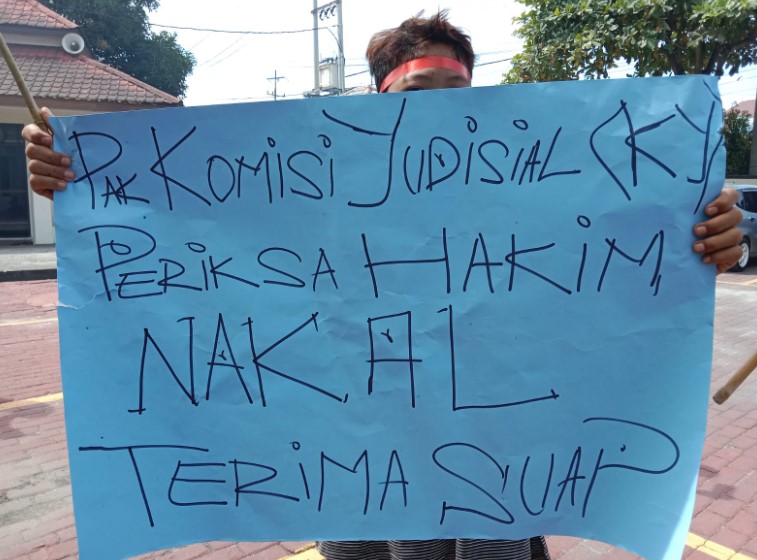 PAK KOMISI YUDISIAL (KY)
PERIKSA HAKIM,
NAKAL
TERIMA SUAP